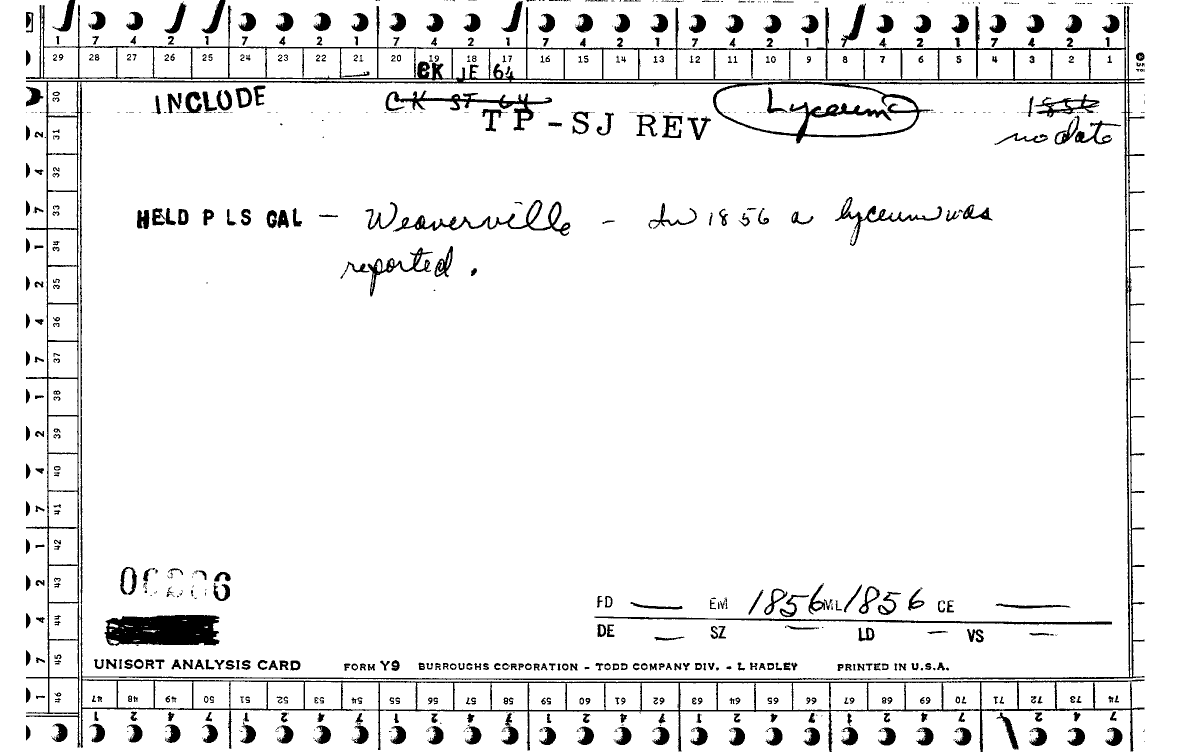 1 7 4 2 1 7 4 2 1 7 4 2 1 7 4 2 1 7 4 2 1 7 4 2 1 7 4 2 1
29 28 27 26 25 24 23 22 21 20 19 18 17 16 15 14 13 12 11 10 9 8 7 6 5 4 3 2 1
CK JE 64
INCLUDE CK ST 64 Lyceum 1856
TP-SJ REV no date
HELD P LS CAL – Weaverville – In 1856 a lyceum was
reported.
30
2 31
4 32
7 33
1 34
2 35
4 36
7 37
1 38
2 39
4 40
7 41
1 42
2 43
4 44
7 45
1 46
FD — EM 1856 ML 1856 CE —
DE — SZ — LD — VS —
UNISORT ANALYSIS CARD FORM Y9 BURROUGHS CORPORATION – TODD COMPANY DIV. – L HADLEY PRINTED IN U.S.A.
47 48 49 50 51 52 53 54 55 56 57 58 59 60 61 62 63 64 65 66 67 68 69 70 71 72 73 74
1 2 4 7 1 2 4 7 1 2 4 7 1 2 4 7 1 2 4 7 1 2 4 7 2 4 7